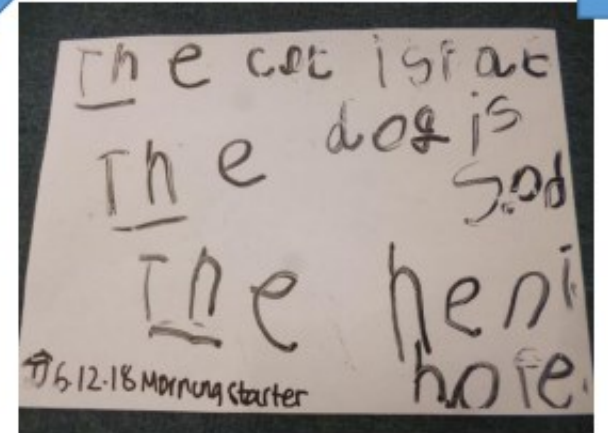 The cat is fat
The dog is
sad
The hen i
hote.
6.12.18 Morning starter